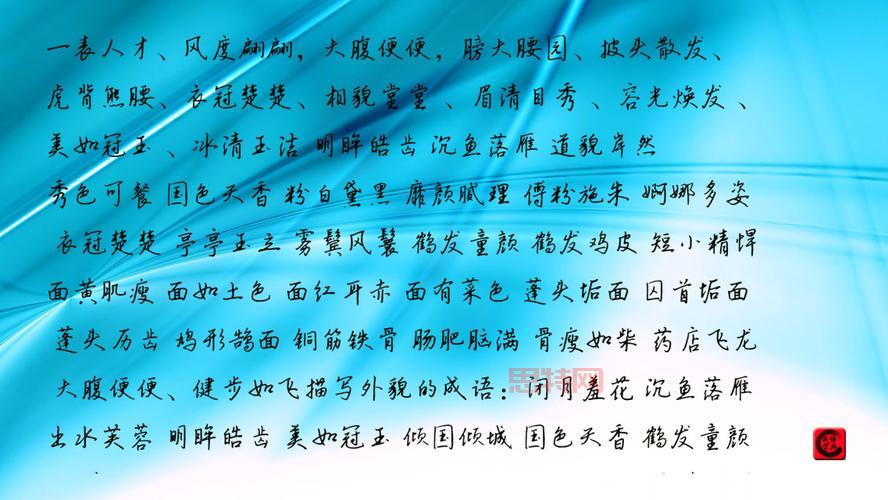 一表人才、风度翩翩，大腹便便，膀大腰园、披头散发、
虎背熊腰、衣冠楚楚、相貌堂堂、眉清目秀、容光焕发、
美如冠玉、冰清玉洁 明眸皓齿 沉鱼落雁 道貌岸然
秀色可餐 国色天香 粉白黛黑 靡颜腻理 傅粉施朱 婀娜多姿
衣冠楚楚 亭亭玉立 雾鬓风鬟 鹤发童颜 鹤发鸡皮 短小精悍
面黄肌瘦 面如土色 面红耳赤 面有菜色 蓬头垢面 囚首垢面
蓬头历齿 鸠形鹄面 铜筋铁骨 肠肥脑满 骨瘦如柴 药店飞龙
大腹便便、健步如飞描写外貌的成语：闭月羞花 沉鱼落雁
出水芙蓉 明眸皓齿 美如冠玉 倾国倾城 国色天香 鹤发童颜
思特网